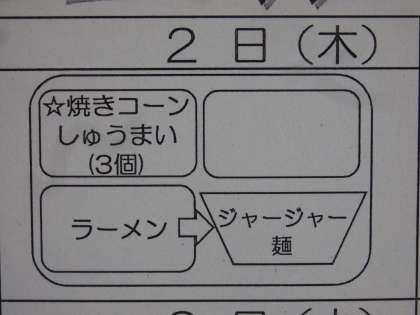 2 日 (木)
☆焼きコーン
しゅうまい
(3個)
ラーメン
ジャージャー
麺